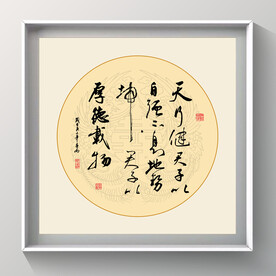 天行健君子以
自强不息地势
坤君子以
厚德载物